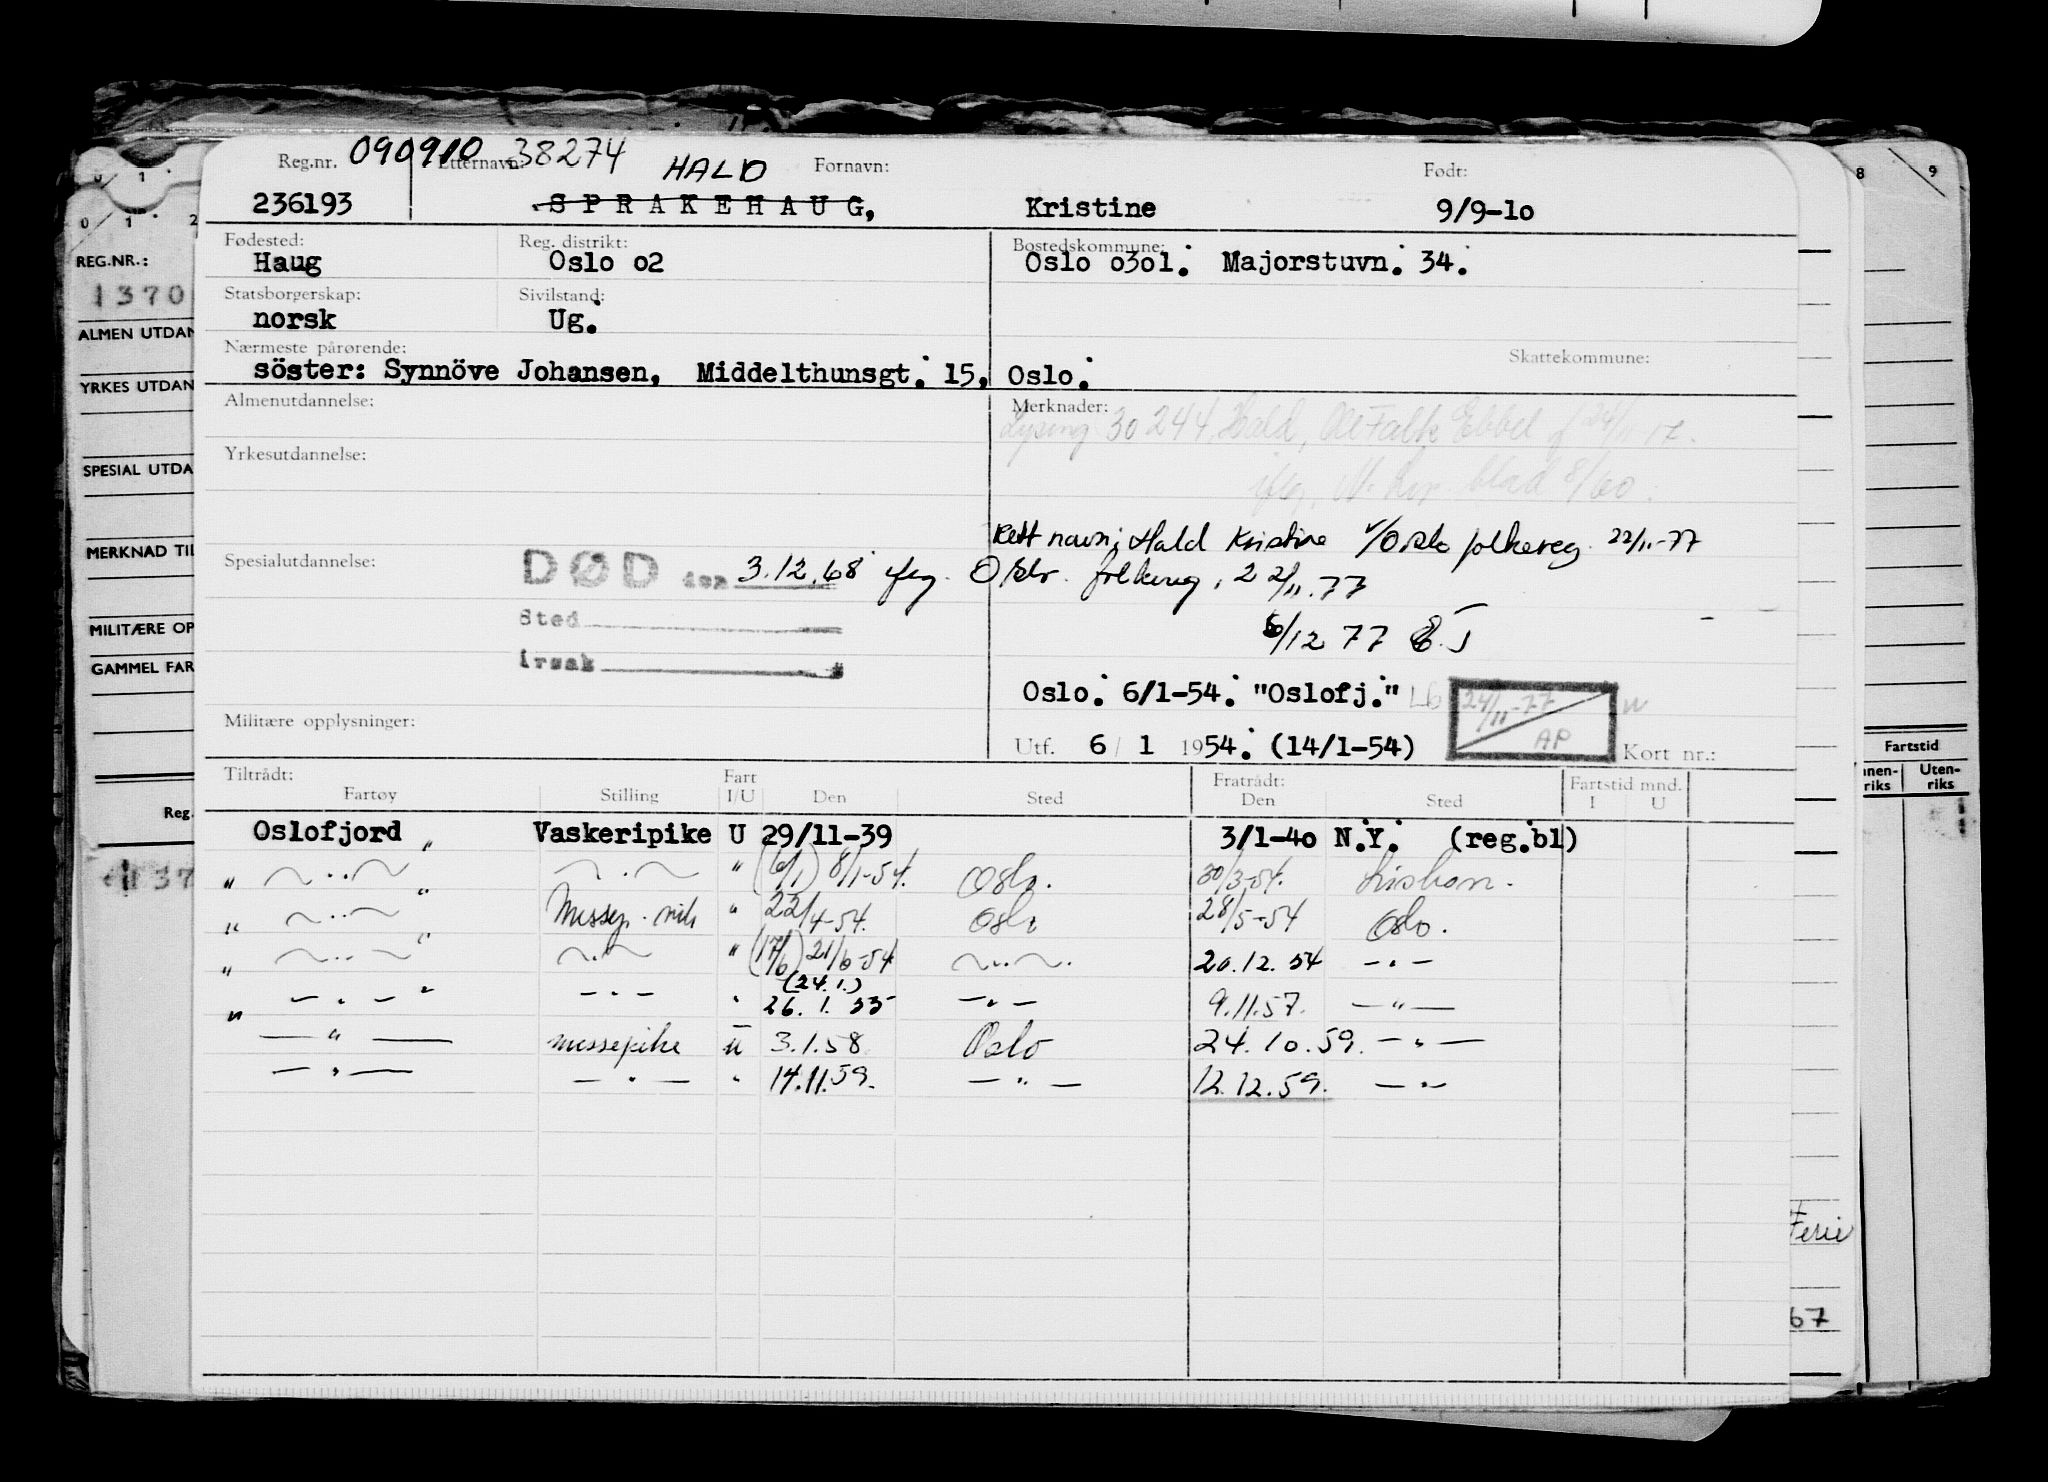 Reg.nr. 090910 Etternavn: 38274 HALD Fornavn: Født:
236193 SPRAKEHAUG, Kristine 9/9-1o
Fødested: Reg. distrikt: Bostedskommune:
Haug Oslo o2 Oslo o3o1. Majorstuvn. 34.
Statsborgerskap: Sivilstand:
norsk Ug.
Nærmeste pårørende: Skattekommune:
söster: Synnöve Johansen, Middelthunsgt. 15, Oslo.
Almenutdannelse: Merknader:
Lysing 30244 Hald, Ole Falk Ebbel f 24/11-17.
Yrkesutdannelse:
blad 8/60.
Rett navn: Hald Kristine v/Oslo folkereg. 22/11-77
Spesialutdannelse: DØD den 3.12.68 ifeg. Oslo folkereg, 22/11.77
Sted
6/12 77 E.J
årsak
Oslo. 6/1-54. "Oslofj." 24/11-77 AP
Militære opplysninger:
Utf. 6 / 1 1954. (14/1-54) Kort nr.:
Tiltrådt: Fart Fratrådt: Fartstid mnd.
Fartøy Stilling I/U Den Sted Den Sted I U
Oslofjord " Vaskeripike U 29/11-39 3/1-4o N.Y. (reg.bl)
" — " — " — " — " (6/1) 8/1-54. Oslo. 30/3-54. Lissabon.
" — " — " Messep. " 22/4-54. Oslo 28/5-54 Oslo.
" — " — " — " — " (17/6) 21/6-54 — " — 20.12.54 — " —
(24.1.)
" — " — " — " — " 26.1.55 — " — 9.11.57. — " —
— " — messepike U 3.1.58 Oslo 24.10.59. — " —
— " — — " — " 14.11.59. — " — 12.12.59. — " —
0 1 2
8 9
REG.NR.:
1370
ALMEN UTDAN
YRKES UTDAN
SPESIAL UTDA
MERKNAD TIL
MILITÆRE OP
GAMMEL FAR
Reg.
137
Fartstid
nnen-riks Uten-riks
Ferie
67